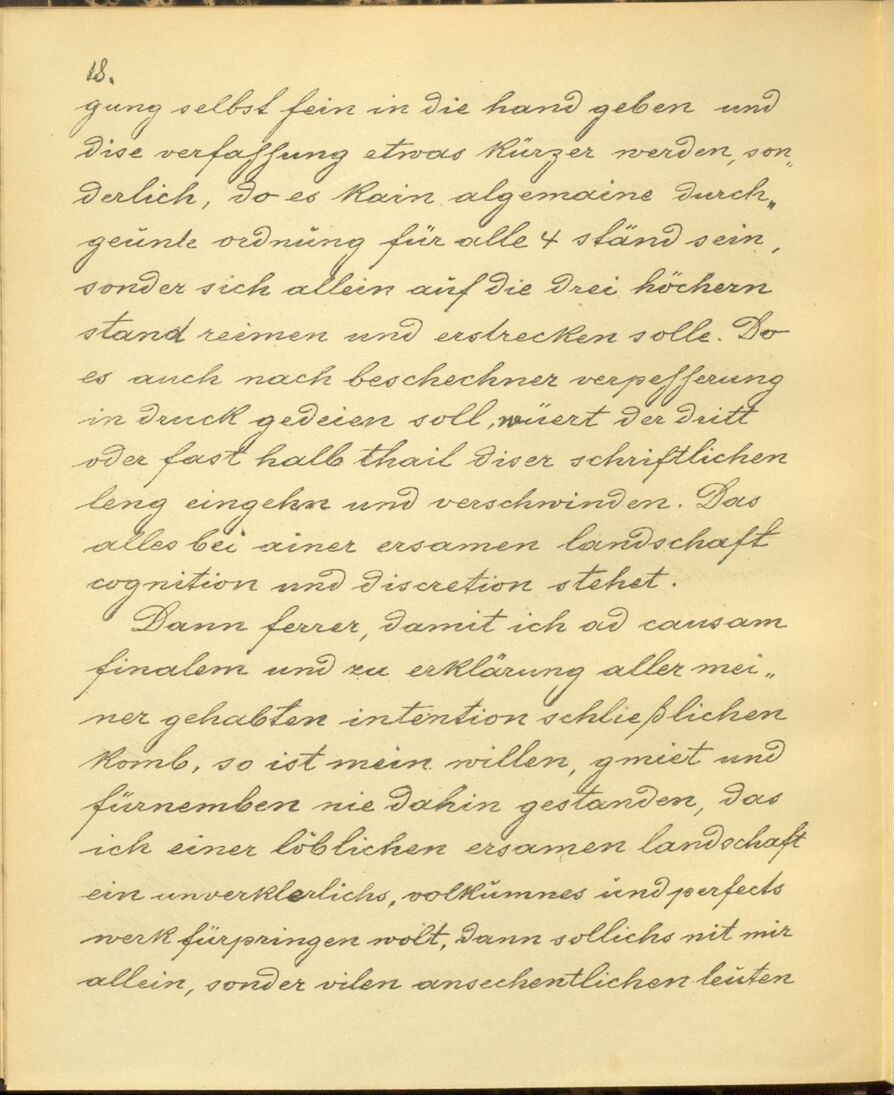 18.
gung selbst fein in die hand geben und
dise verfassung etwas kürzer werden, son„
derlich, do es kain algemaine durch„
geünte ordnüng für alle 4 ständ sein,
sonder sich allein auf die drei höchern
stand reimen und erstrecken solle. Do
es auch nach beschechner verpesserung
in druck gedeien soll, wüert der dritt
oder fast halb thail diser schriftlichen
leng eingehn und verschwinden. Das
alles bei ainer ersamen landschaft
cognition und discretion stehet.
Dann ferrer, damit ich ad causam
finalem und zu erklärung aller mei„
ner gehabten intention schließlichen
komb, so ist mein willen, gmiet und
fürnemben nie dahin gestanden, das
ich einer löblichen ersamen landschaft
ein unverklerlichs, volkumnes und perfects
werk fürpringen wölt, dann sollichs nit mir
allein, sonder vilen ansechentlichen leüten